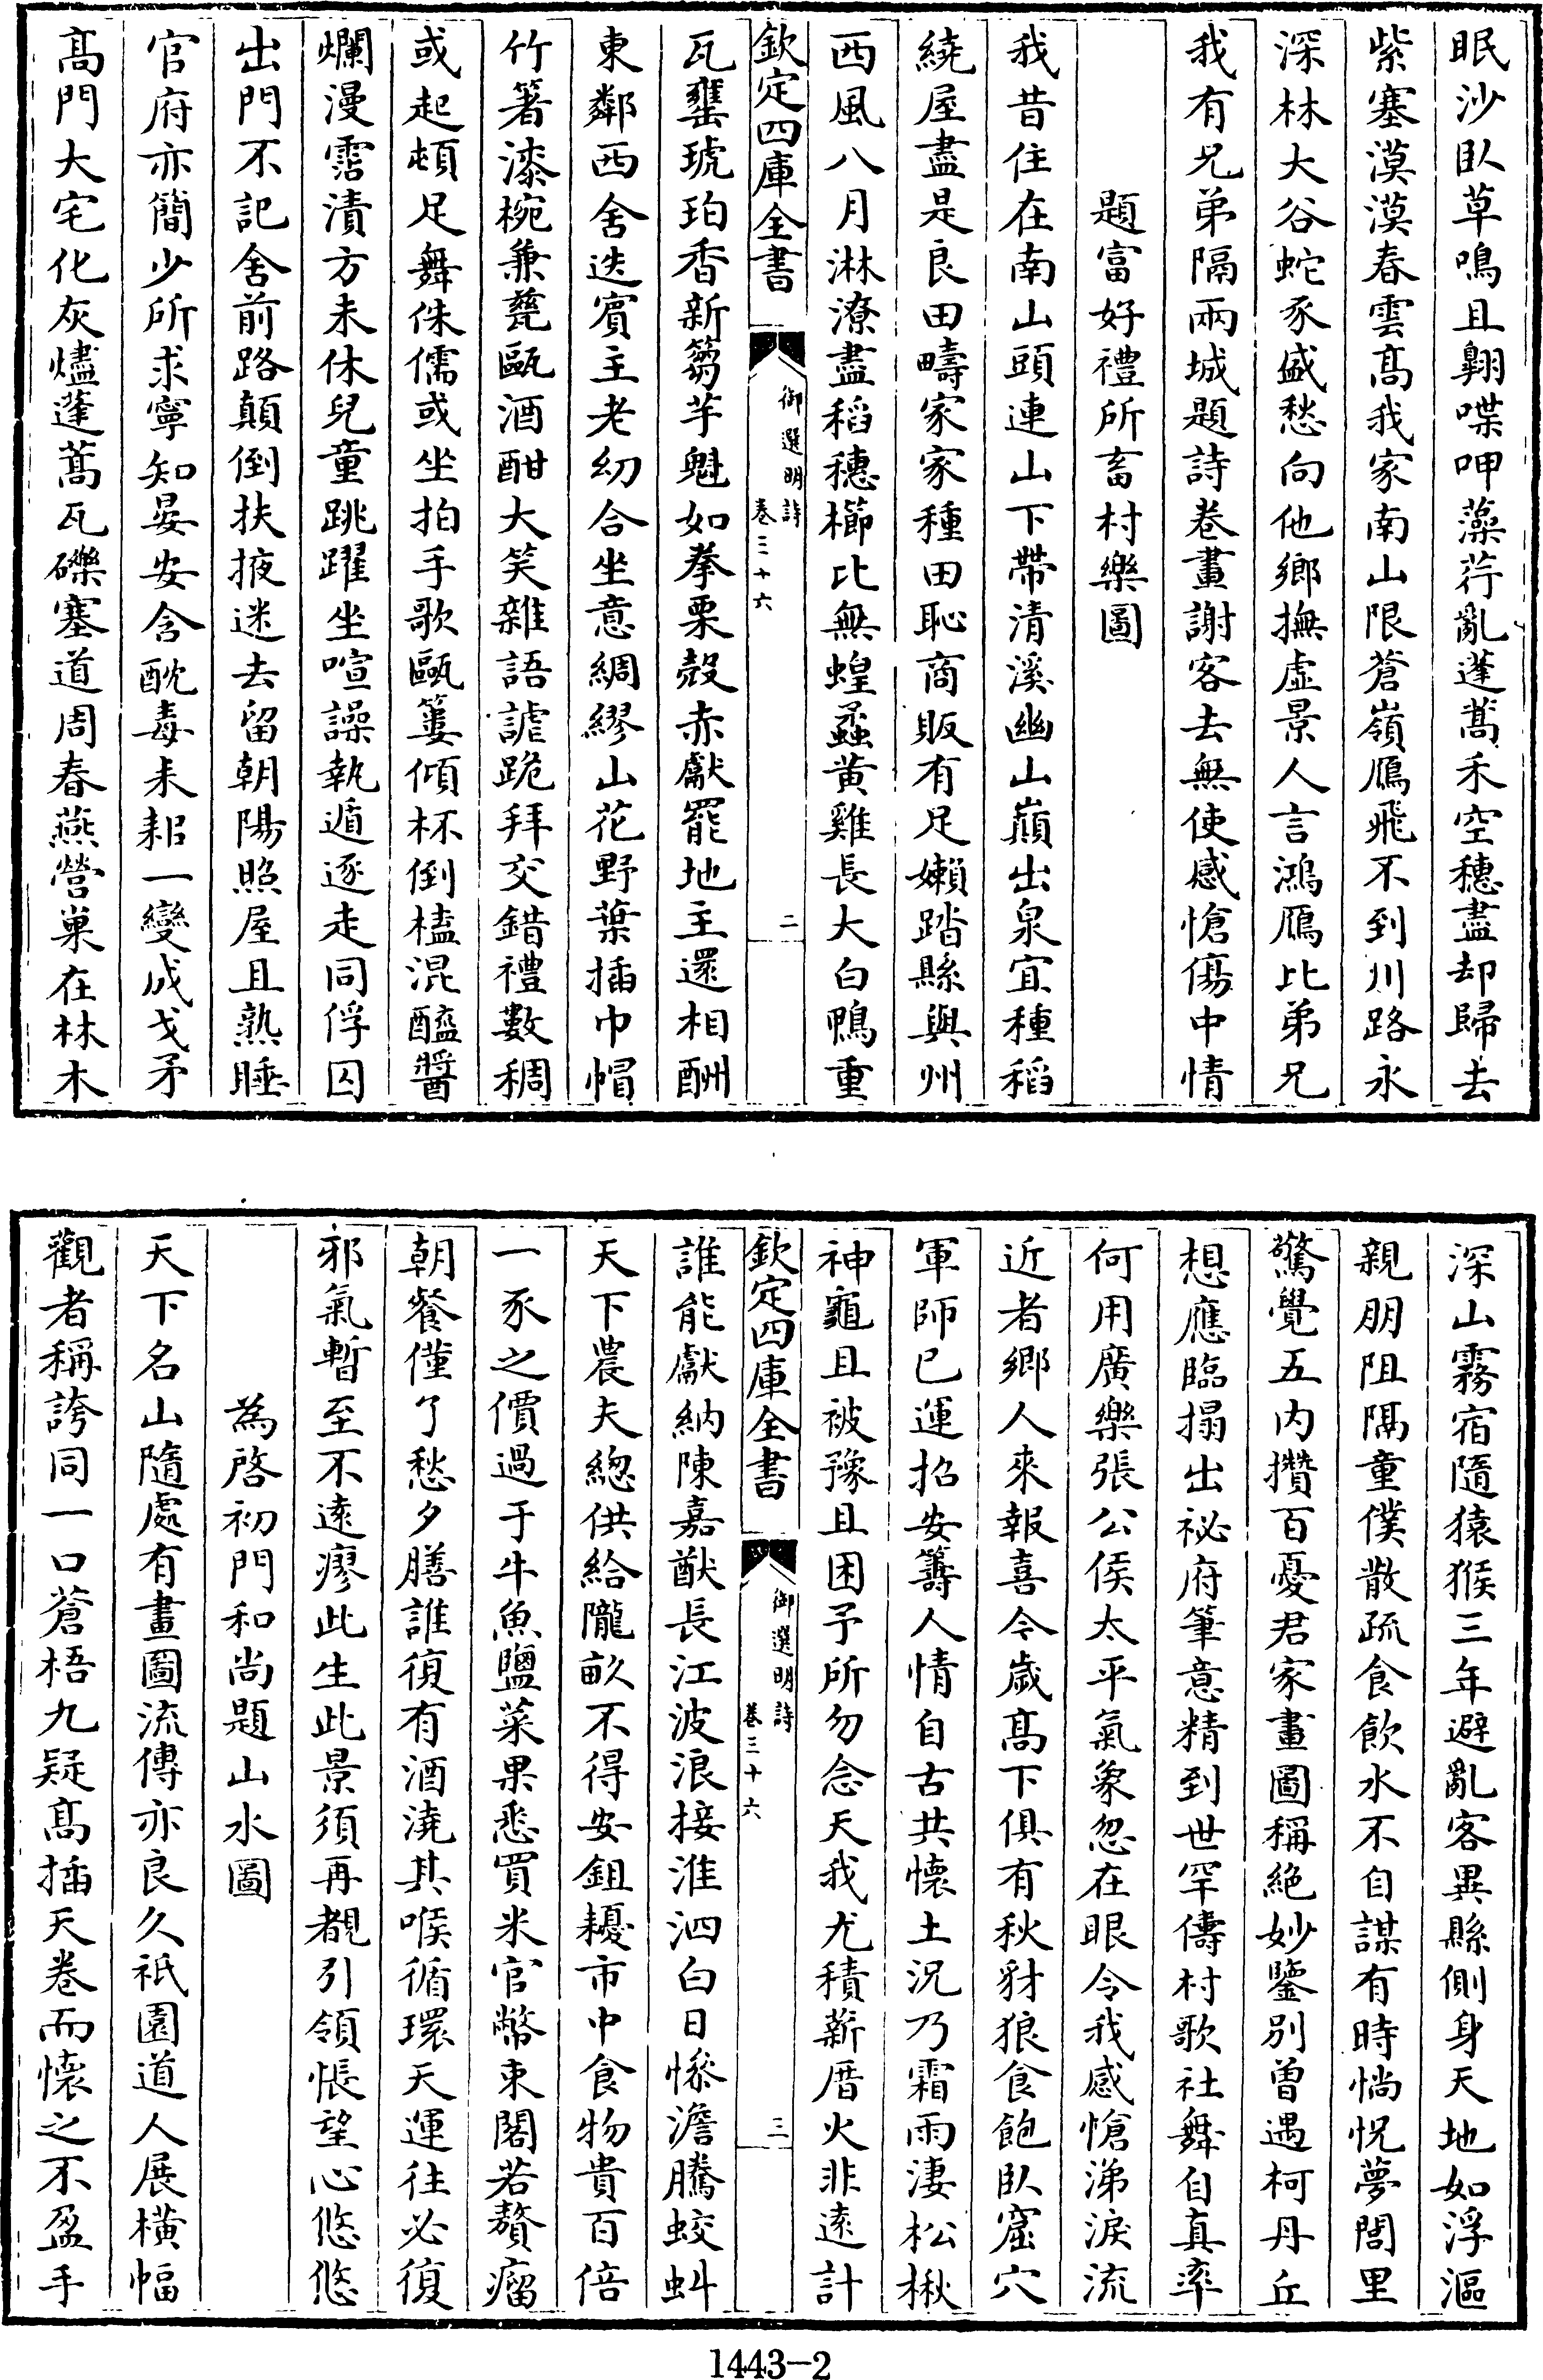 眠沙臥草鳴且翺喋呷藻荇亂蓬蒿禾空穗盡却歸去
紫塞漠漠春雲髙我家南山限蒼嶺鴈飛不到川路永
深林大谷蛇豕盛愁向他鄉撫虛景人言鴻鴈比弟兄
我有兄弟隔兩城題詩卷畫謝客去無使感愴傷中情
題富好禮所畜村樂圖
我昔住在南山頭連山下帶清溪幽山巔出泉宜種稻
繞屋盡是良田疇家家種田恥商販有足嬾踏縣與州
西風八月淋潦盡稻穗櫛比無蝗蟊黄雞長大白鴨重
欽定四庫全書
御選明詩
卷三十六
二
瓦罋琥珀香新篘芋魁如拳栗殻赤獻罷地主還相酬
東鄰西舍迭賓主老幼合坐意綢繆山花野葉插巾帽
竹箸漆椀兼甆甌酒酣大笑雜語謔跪拜交錯禮數稠
或起頓足舞侏儒或坐拍手歌甌簍傾杯倒榼混醯醬
爛漫霑漬方未休兒童跳躍坐喧譟執遁逐走同俘囚
出門不記舍前路顛倒扶掖迷去留朝陽照屋且熟睡
官府亦簡少所求寧知晏安含酖毒耒耜一變成戈矛
髙門大宅化灰燼蓬蒿瓦礫塞道周春燕營巢在林木
深山霧宿隨猿猴三年避亂客異縣側身天地如浮漚
親朋阻隔童僕散疏食飲水不自謀有時惝怳夢閭里
驚覺五内攢百憂君家畫圖稱絶妙鑒别曾遇柯丹丘
想應臨搨出祕府筆意精到世罕儔村歌社舞自真率
何用廣樂張公侯太平氣象忽在眼令我感愴涕淚流
近者鄉人來報喜今歲髙下俱有秋豺狼食飽臥窟穴
軍師已運招安籌人情自古共懷土況乃霜雨淒松楸
神龜且被豫且困予所勿念天我尤積薪厝火非遠計
欽定四庫全書
御選明詩
卷三十六
三
誰能獻納陳嘉猷長江波浪接淮泗白日慘澹騰蛟虯
天下農夫總供給隴畝不得安鉏耰市中食物貴百倍
一豕之價過于牛魚鹽菜果悉買米官幣束閣若贅瘤
朝餐僅了愁夕膳誰復有酒澆其喉循環天運往必復
邪氣暫至不遠瘳此生此景須再覩引領悵望心悠悠
為啓初門和尚題山水圖
天下名山隨處有畫圖流傳亦良久祇園道人展横幅
觀者稱誇同一口蒼梧九疑髙插天卷而懷之不盈手
1443-2